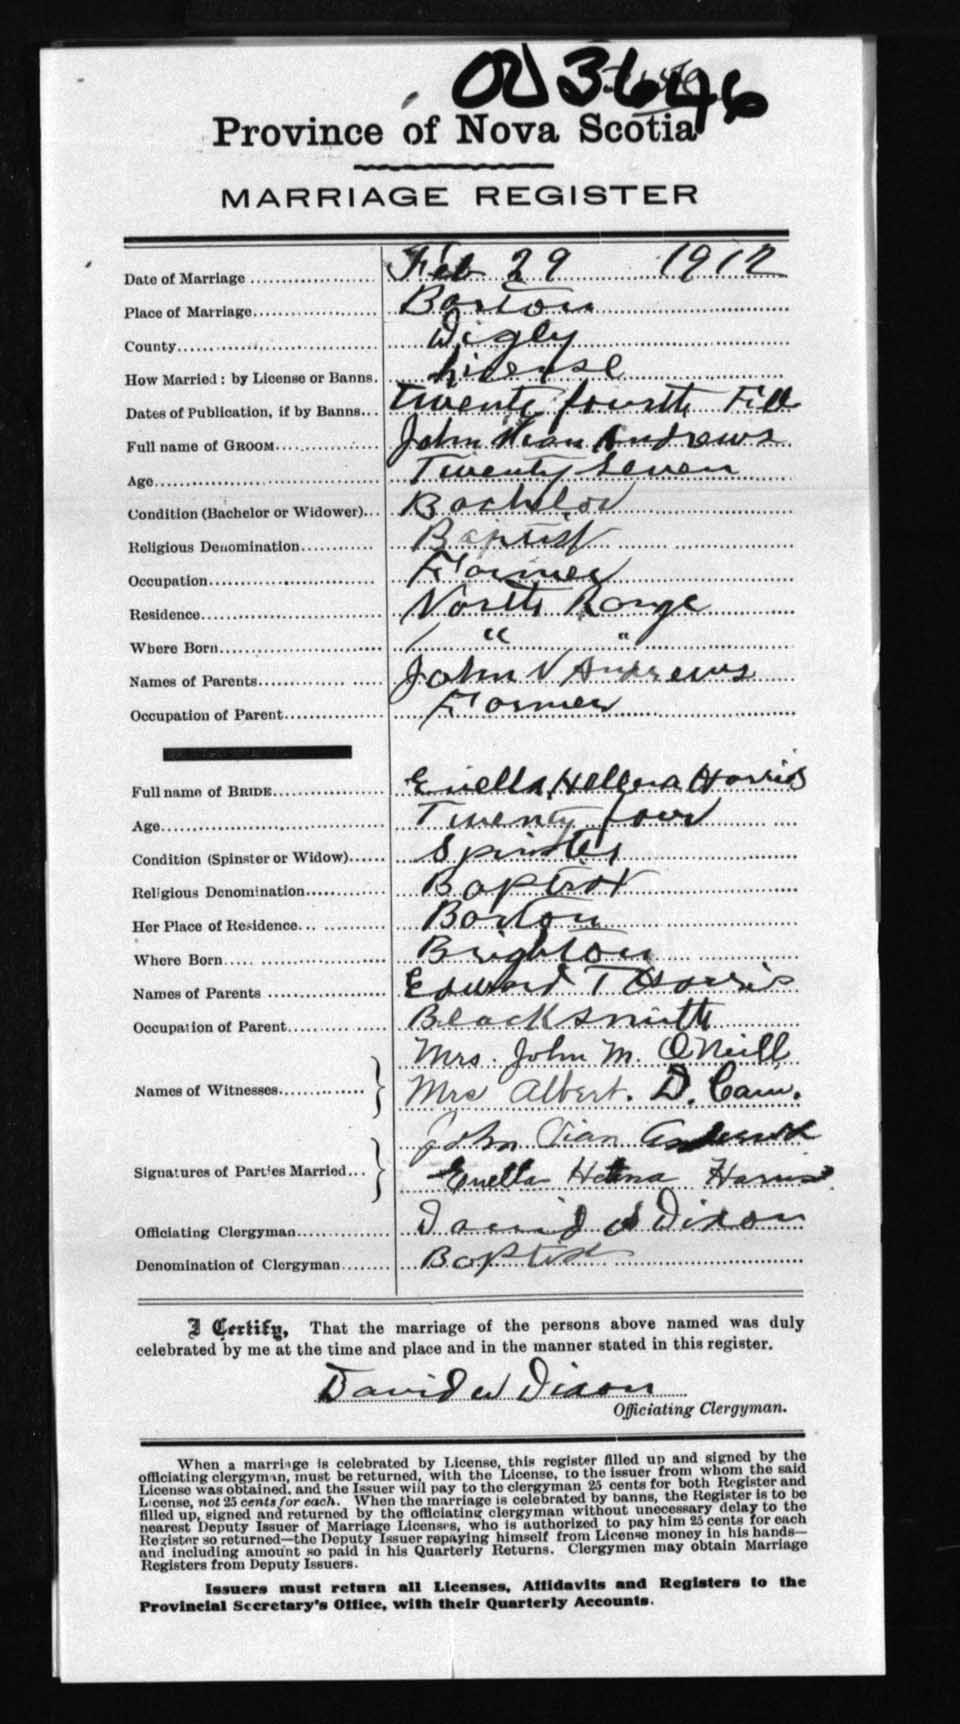 003646
Province of Nova Scotia
MARRIAGE REGISTER
Date of Marriage Feb 29 1912
Place of Marriage Barton
County Digby
How Married: by License or Banns. License
Dates of Publication, if by Banns Twenty fourth Feb
Full name of GROOM John Andrews
Age Twenty Seven
Condition (Bachelor or Widower) Bachelor
Religious Denomination Baptist
Occupation Farmer
Residence North Range
Where Born " "
Names of Parents John V Andrews
Occupation of Parent Farmer
Full name of BRIDE Enella Harris
Age Twenty four
Condition (Spinster or Widow) Spinster
Religious Denomination Baptist
Her Place of Residence Barton
Where Born Brighton
Names of Parents Edward T Harris
Occupation of Parent Blacksmith
Mrs. John M. O'Neill
Names of Witnesses
Mrs Albert. D.
John
Signatures of Parties Married
Enella Harris
Officiating Clergyman David W Dixon
Denomination of Clergyman Baptist
I Certify, That the marriage of the persons above named was duly
celebrated by me at the time and place and in the manner stated in this register.
David W Dixon
Officiating Clergyman.
When a marriage is celebrated by License, this register filled up and signed by the
officiating clergyman, must be returned, with the License, to the issuer from whom the said
License was obtained, and the Issuer will pay to the clergyman 25 cents for both Register and
License, not 25 cents for each. When the marriage is celebrated by banns, the Register is to be
filled up, signed and returned by the officiating clergyman without unecessary delay to the
nearest Deputy Issuer of Marriage Licenses, who is authorized to pay him 25 cents for each
Register so returned—the Deputy Issuer repaying himself from License money in his hands—
and including amount so paid in his Quarterly Returns. Clergymen may obtain Marriage
Registers from Deputy Issuers.
Issuers must return all Licenses, Affidavits and Registers to the
Provincial Secretary's Office, with their Quarterly Accounts.